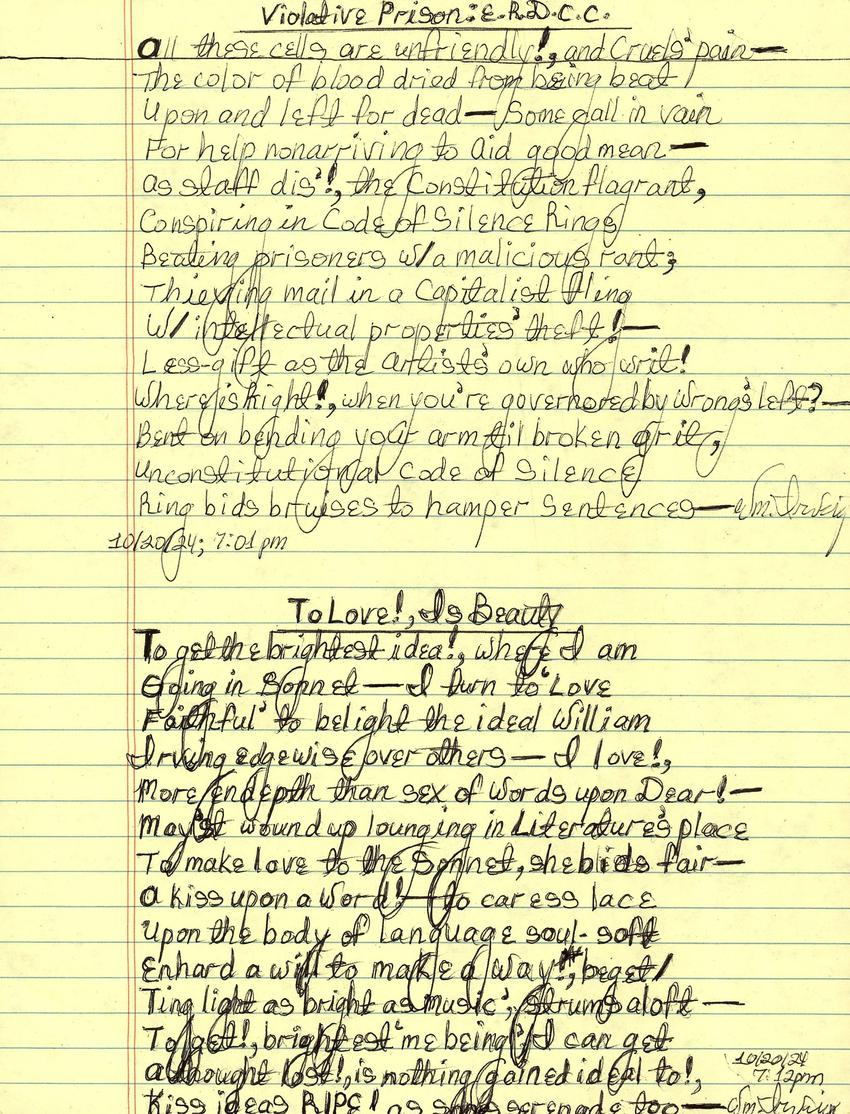 Violative Prison: E.R.D.C.C.
All these cells are unfriendly!, and Cruels' pain—
The color of blood dried from being beat /
Upon and left for dead— Some call in vain
For help nonarriving to aid good mean—
As staff dis'!, the Constitution flagrant,
Conspiring in Code of Silence Rings
Beating prisoners w/a malicious rant;
Thiefing mail in a Capitalist fling
W/ intellectual properties' theft!—
Less-gift as the artists' own who writ!
Where is Right!, when you're governored by Wrong's left?—
Bent on bending your arm til broken grit,
Unconstitutional Code of Silence
Ring bids bruises to hamper Sentences—
10/20/24; 7:01pm
To Love!, Is Beauty
To get the brightest idea!, where I am
Going in Sonnet — I turn to 'Love
Faithful' to belight the ideal William
Irving edgewise over others— I love!,
More endepth than sex of Words upon Dear!—
May'st wound up lounging in Literature's place
To make love to the Sonnet, she bids fair—
A kiss upon a Word!—to caress lace
Upon the body of language soul-soft
Enhard a will to make a Way!*, beget/
Ting light as bright as music', strums aloft —
To get!, brightest 'me being' I can get
A thought lost!, is nothing gained ideal to!,
10/20/24
7:12pm
Kiss ideas RIPE! as serenade too—